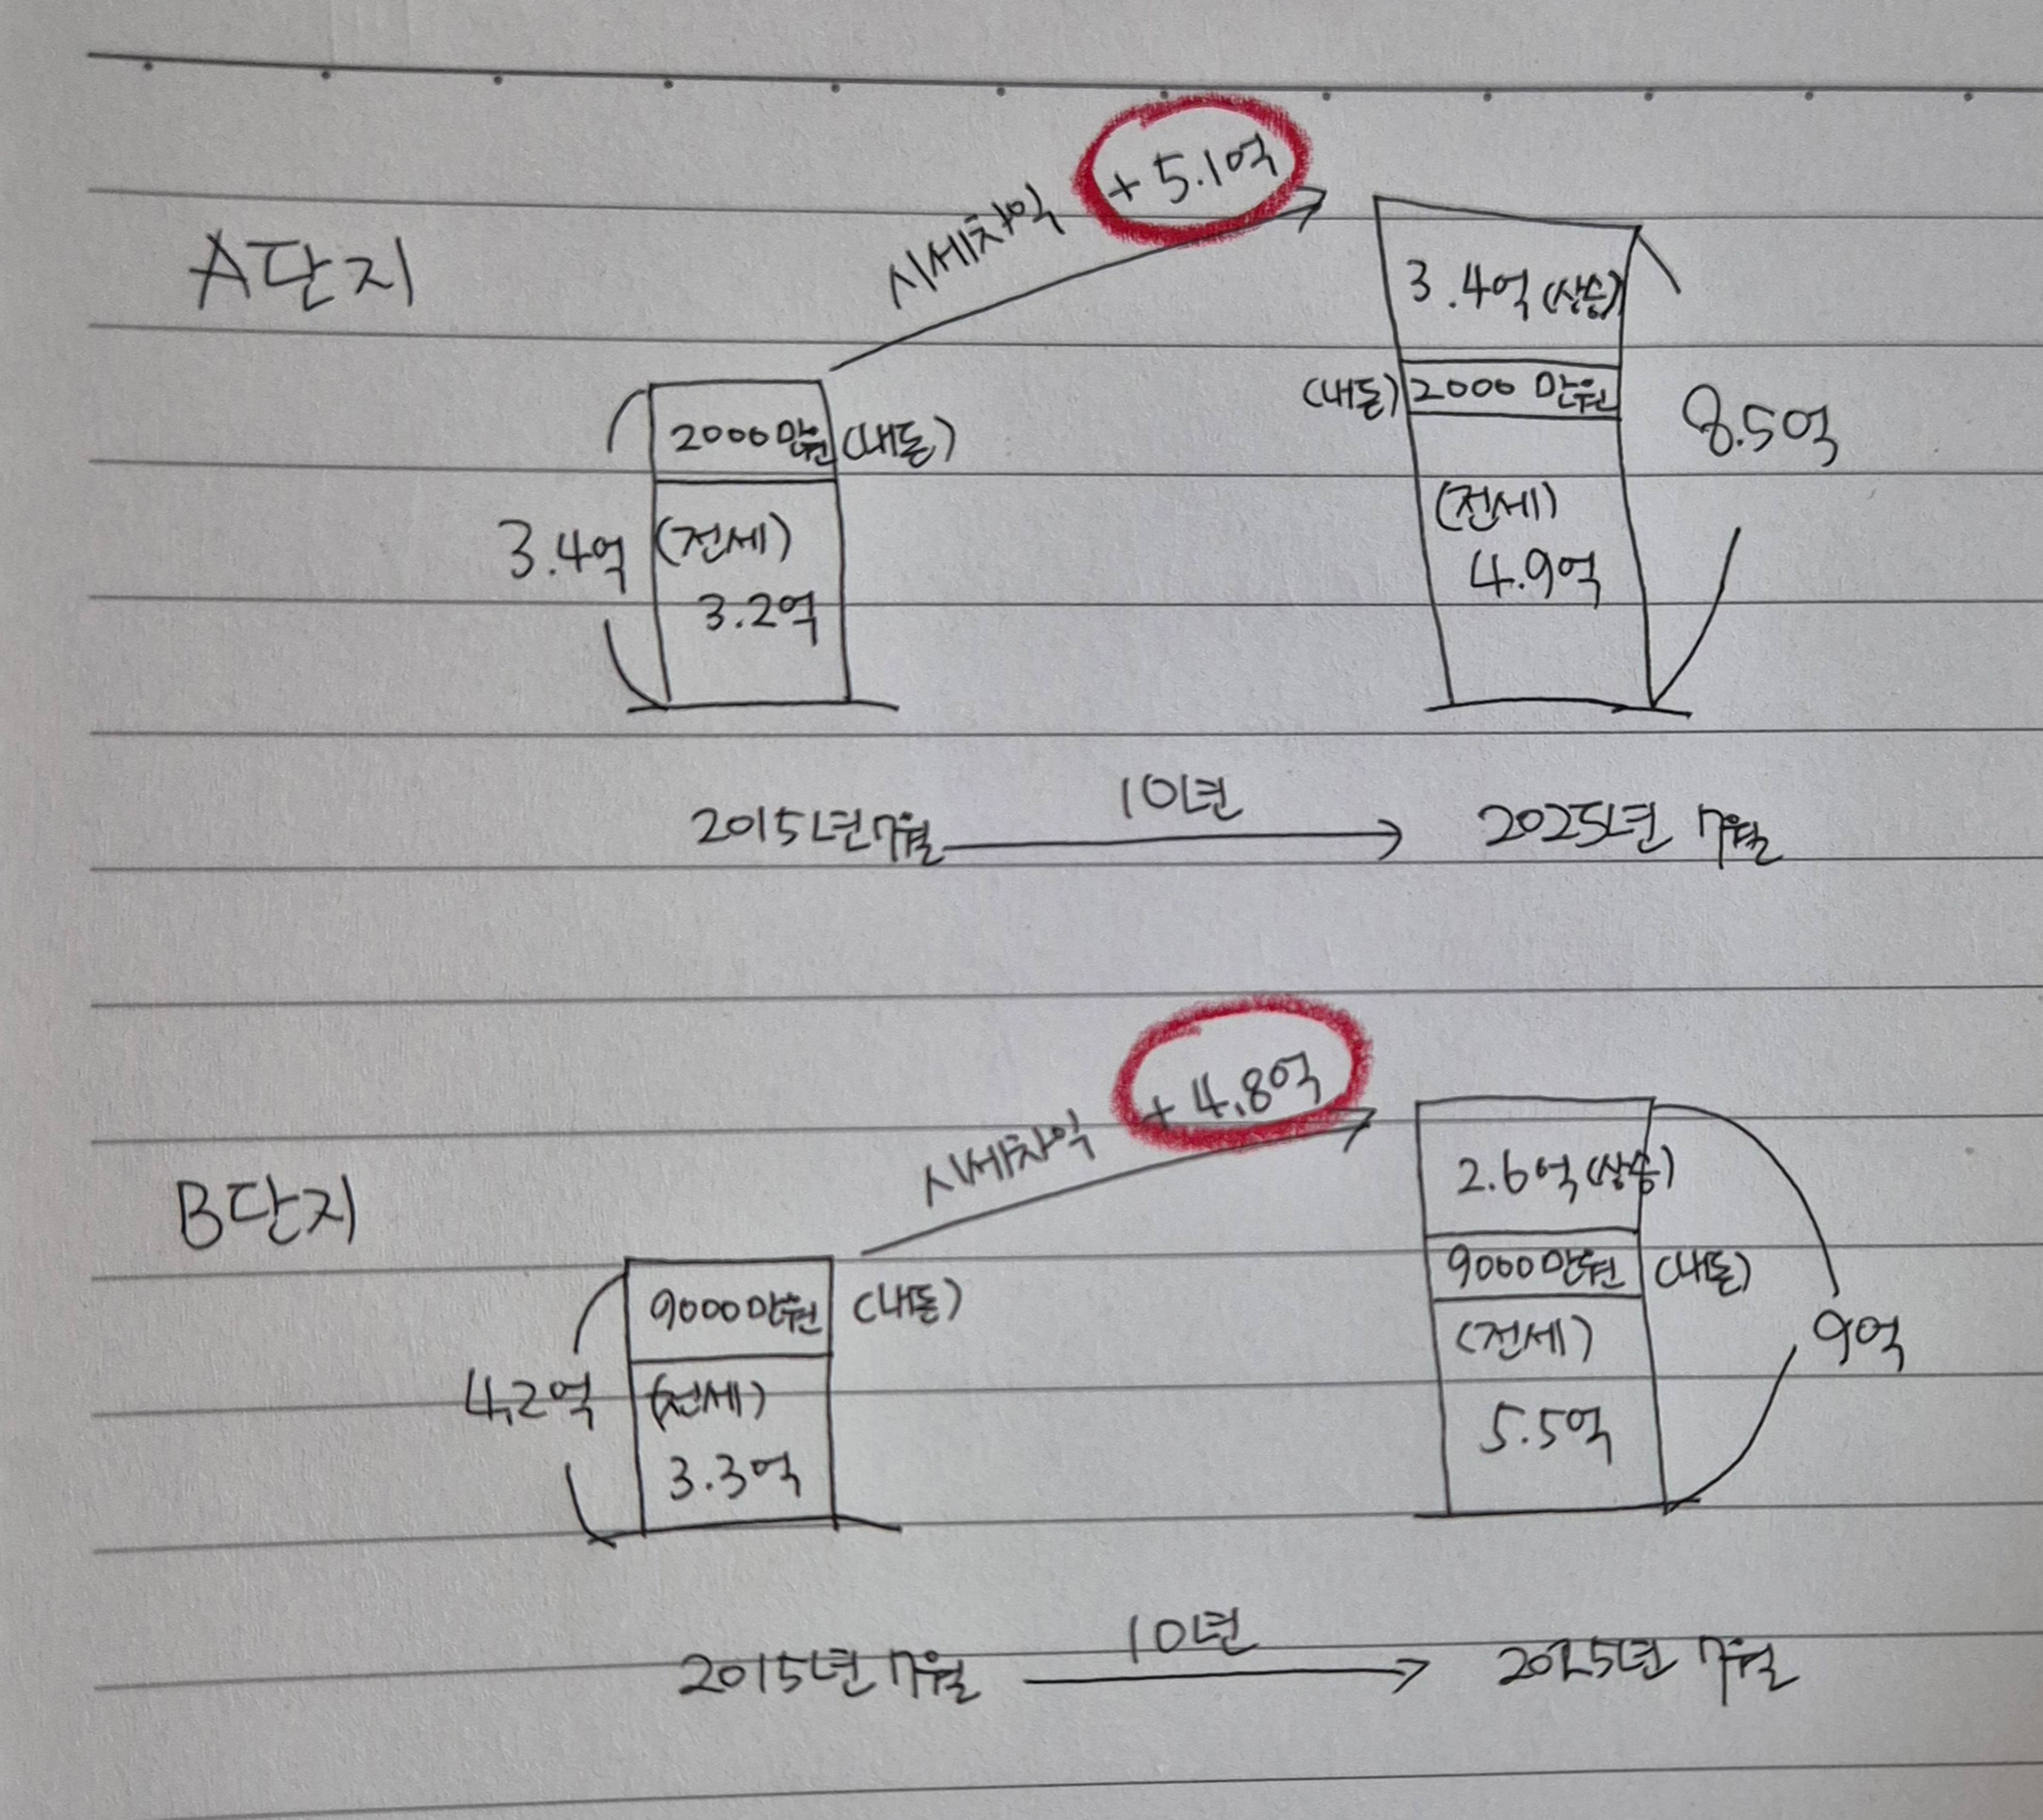 A단지
시세차익 +5.1억
2000만원 (내돈)
3.4억
(전세)
3.2억
3.4억 (상승)
(내돈) 2000만원
(전세)
4.9억
8.5억
2015년 7월
10년
2025년 7월
B단지
시세차익 +4.8억
9000만원 (내돈)
4.2억
(전세)
3.3억
2.6억 (상승)
9000만원 (내돈)
(전세)
5.5억
9억
2015년 7월
10년
2025년 7월